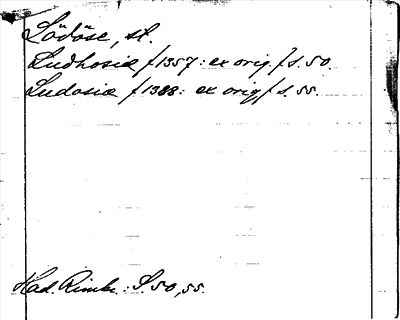 Lödöse, st.
Ludhosiæ /1357: ex orig./ s. 50.
Ludosiæ /1388: ex orig/ s. 55.
Had. Rimbr.: S. 50, 55.